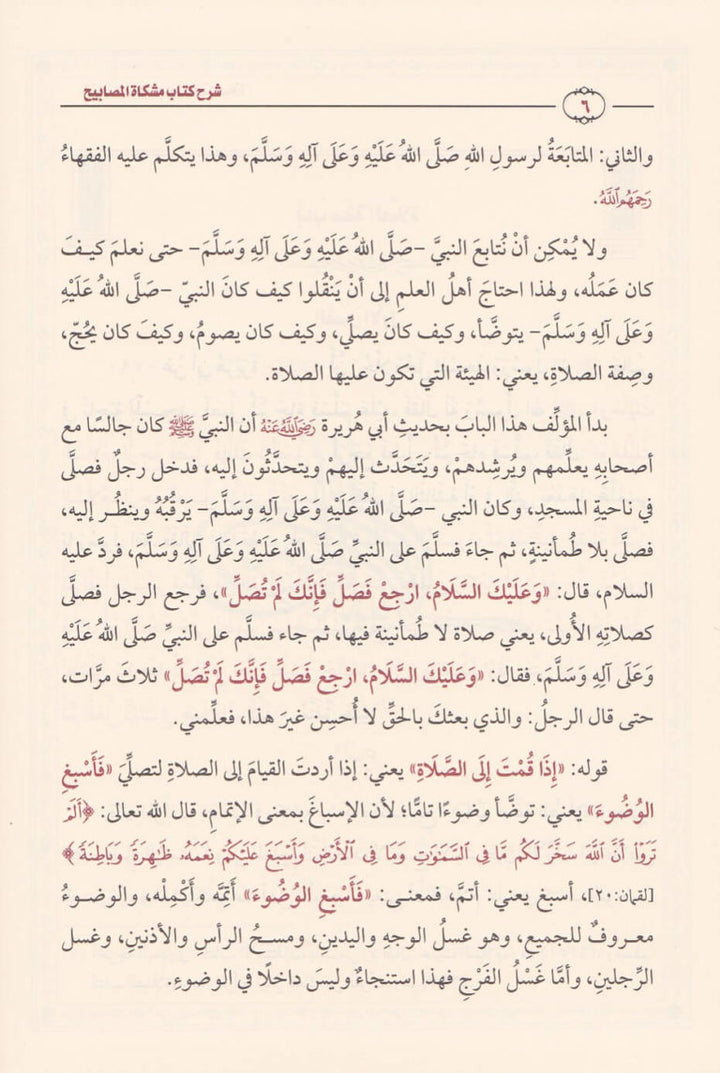 شرح كتاب مشكاة المصابيح
٦
والثاني: المتابَعَةُ لرسولِ اللهِ صَلَّى اللهُ عَلَيْهِ وَعَلَى آلِهِ وَسَلَّمَ، وهذا يتكلَّم عليه الفقهاءُ
رَحِمَهُمُ اللَّهُ.
ولا يُمْكِن أنْ نُتابعَ النبيَّ –صَلَّى اللهُ عَلَيْهِ وَعَلَى آلِهِ وَسَلَّمَ– حتى نعلمَ كيفَ
كان عَمَلُه، ولهذا احتاجَ أهلُ العلمِ إلى أنْ يَنْقُلوا كيف كانَ النبيّ –صَلَّى اللهُ عَلَيْهِ
وَعَلَى آلِهِ وَسَلَّمَ– يتوضَّأ، وكيف كانَ يصلِّي، وكيف كان يصومُ، وكيفَ كان يحُجّ،
وصِفة الصلاةِ، يعني: الهيئة التي تكون عليها الصلاة.
بدأ المؤلِّف هذا البابَ بحديثِ أبي هُريرة رَضِيَ اللَّهُ عَنْهُ أن النبيَّ ﷺ كان جالسًا مع
أصحابِهِ يعلِّمهم ويُرشِدهمْ، ويَتَحَدَّث إليهمْ ويتحدَّثُونَ إليه، فدخل رجلٌ فصلَّى
في ناحيةِ المسجدِ، وكان النبي –صَلَّى اللهُ عَلَيْهِ وَعَلَى آلِهِ وَسَلَّمَ– يَرْقُبُهُ وينظُر إليه،
فصلَّى بلا طُمأنينةٍ، ثم جاءَ فسلَّمَ على النبيِّ صَلَّى اللهُ عَلَيْهِ وَعَلَى آلِهِ وَسَلَّمَ، فردَّ عليه
السلام، قال: «وَعَلَيْكَ السَّلَامُ، ارْجِعْ فَصَلِّ فَإِنَّكَ لَمْ تُصَلِّ»، فرجع الرجل فصلَّى
كصلاتِهِ الأُولى، يعني صلاة لا طُمأنينة فيها، ثم جاء فسلَّم على النبيِّ صَلَّى اللهُ عَلَيْهِ
وَعَلَى آلِهِ وَسَلَّمَ، فقال: «وَعَلَيْكَ السَّلَامُ، ارجِعْ فَصَلِّ فَإِنَّكَ لَمْ تُصَلِّ» ثلاثَ مرَّات،
حتى قال الرجلُ: والذي بعثكَ بالحقِّ لا أُحسِن غيرَ هذا، فعلِّمني.
قوله: «إِذَا قُمْتَ إِلَى الصَّلَاةِ» يعني: إذا أردتَ القيامَ إلى الصلاةِ لتصلِّيَ «فَأَسْبِغِ
الوُضُوءَ» يعني: توضَّأ وضوءًا تامًّا؛ لأن الإسباغَ بمعنى الإتمامِ، قال الله تعالى: ﴿أَلَمْ
تَرَوْا أَنَّ اللَّهَ سَخَّرَ لَكُم مَّا فِي السَّمَٰوَٰتِ وَمَا فِي الْأَرْضِ وَأَسْبَغَ عَلَيْكُمْ نِعَمَهُۥ ظَٰهِرَةً وَبَاطِنَةً﴾
[لقمان:٢٠]، أسبغ يعني: أتمَّ، فمعنى: «فَأَسْبِغِ الوُضُوءَ» أَتِمَّه وأَكْمِلْه، والوضوءُ
معروفٌ للجميعِ، وهو غسلُ الوجهِ واليدينِ، ومسحُ الرأسِ والأذنينِ، وغسل
الرِّجلينِ، وأمَّا غَسْلُ الفَرْجِ فهذا استنجاءٌ وليسَ داخلًا في الوضوءِ.